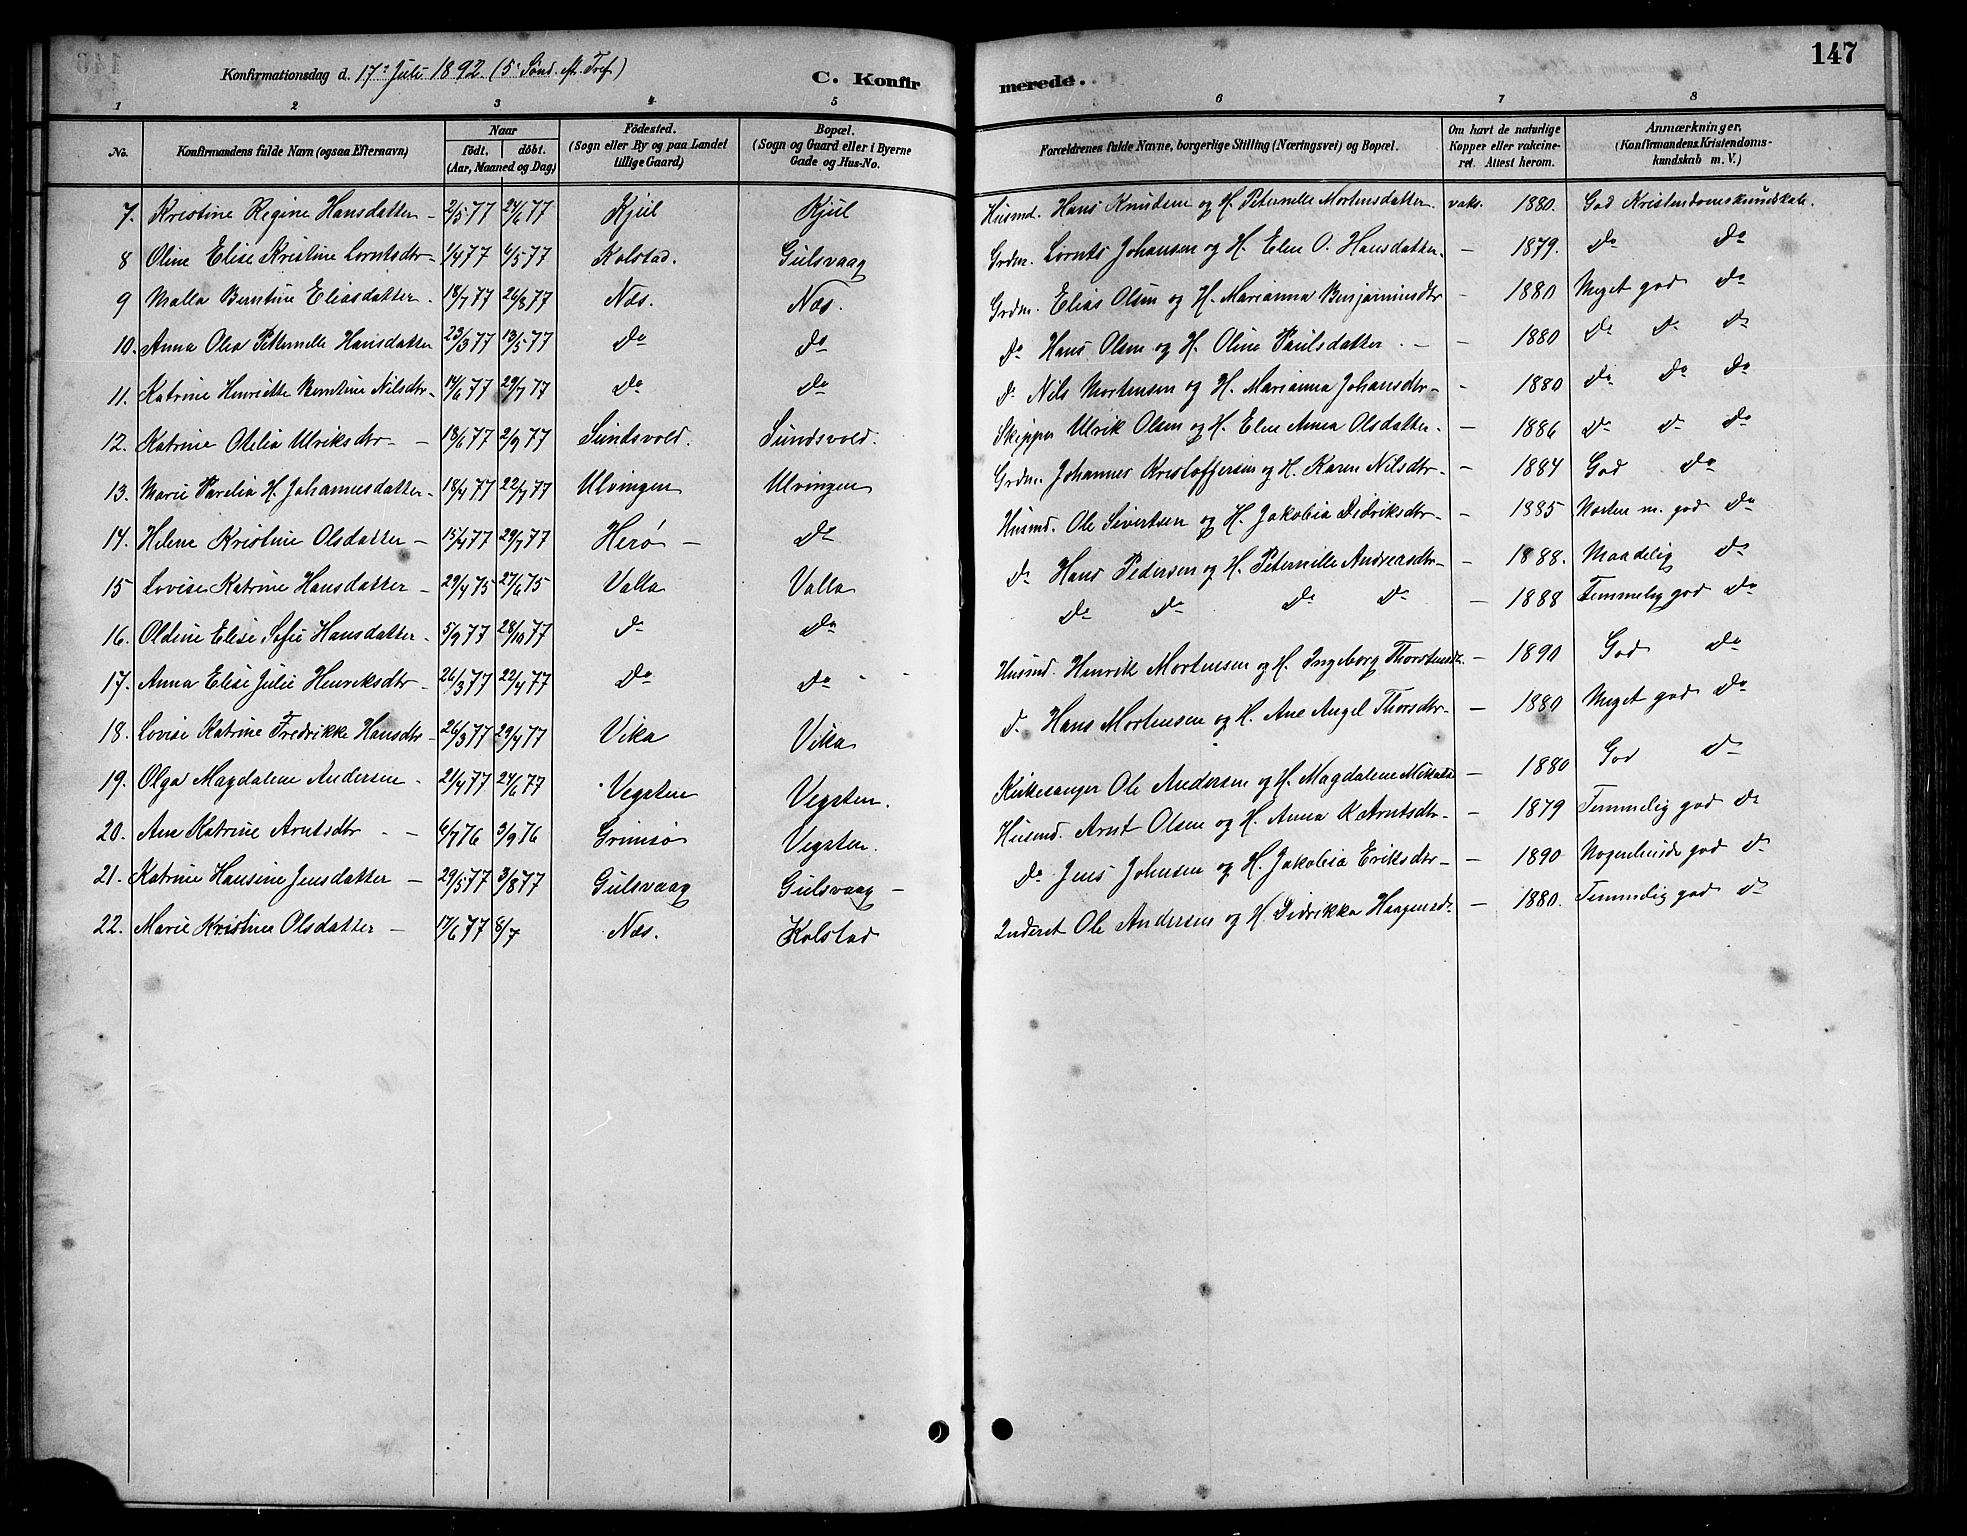 Konfirmationsdag d. 17de Juli 1892. (5 Sønd. eft. Tref.) C. Konfirmerede. 147
1 2 3 4 5 6 7 8
No. Konfirmandens fulde Navn (ogsaa Efternavn) Naar födt. döbt. (Aar, Maaned og Dag) Födested. (Sogn eller By og paa Landet tillige Gaard) Bopæl. (Sogn og Gaard eller i Byerne Gade og Hus-No. Forældrenes fulde Navne, borgerlige Stilling (Næringsvei) og Bopæl. Om havt de naturlige Kopper eller vakcineret. Attest herom. Anmærkninger, (Konfirmandens Kristendomskundskab m. V.)
7. Kristine Regine Hansdatter – 2/5 77 24/6 77 Kjul Kjul Husmd. Hans Knudsen og H. Peternelle Mortensdatter. vaks. 1880. God Kristendomskundskab.
8 Oline Elise Kristine Lorntsdtr – 1/4 77 6/5 77 Kolstad. Gulsvaag Grdm. Lornts Johansen og H. Elen O. Hansdatter. – 1879. do do
9 Malla Berntine Eliasdatter. 18/7 77 26/8 77 Næs. Næs. Grdm. Elias Olsen og H. Marianna Benjaminsdtr – 1880 Meget god do
10. Anna Olea Petternelle Hansdatter 23/3 77 13/5 77 do do do Hans Olsen og H. Oline Paulsdatter. – – 1880 do do do
11. Katrine Henriette Berntine Nilsdtr – 14/6 77 29/7 77 do do do Nils Mortensen og H. Marianna Johansdtr – – 1880 do do do
12. Katrine Otelia Ulriksdtr – – 18/6 77 2/9 77 Sundsvold. Sundsvold. Skipper Ulrik Olsen og H. Elen Anna Olsdatter. – 1886 do do do
13. Marie Parelia H. Johannesdatter – 18/4 77 22/7 77 Ulvingen Ulvingen Grdm. Johannes Kristoffersen og H. Karen Nilsdtr – – 1884 God do
14. Helene Kristine Olsdatter – 15/4 77 29/7 77 Herø – do Husmd. Ole Sivertsen og H. Jakobia Didriksdtr – – 1885 Næsten m. god do
15 Lovise Katrine Hansdatter – 29/4 75 27/6 75 Valla Valla do Hans Pedersen og H. Peternelle Andreasdtr – – 1888. Maadelig do
16. Oldine Elise Sofie Hansdatter. 5/9 77 28/10 77 do do do do do do – 1888 Temmelig god do
17. Anna Elise Julie Henriksdtr – 26/3 77 22/4 77 do do Husmd. Henrik Mortensen og H. Ingeborg Thorstensdtr. – 1890 God do
18. Lovise Katrine Fredrikke Hansdtr – 26/3 77 29/4 77 Vika Vika do Hans Mortensen og H. Ane Angel Thorsdtr – – 1880 Meget god do
19. Olga Magdalene Andersen – 21/4 77 24/6 77 Vegsten Vegsten. Kirkesanger Ole Andersen og H. Magdalene – 1880 God do
20. Ane Katrine Arntsdtr – 6/7 76 3/9 76 Grimsø Vegsten. Husmd. Arnt Olsen og H. Anna K. Arntsdtr – – 1879 Temmelig god do
21. Katrine Hansine Jensdatter – 29/5 77 3/8 77 Gulsvaag Gulsvaag – do Jens Johnsen og H. Jakobia Eriksdtr – – 1890 Nogenlunde god do
22. Marie Kristine Olsdatter – 17/6 77 8/7 Næs. Kolstad Inderst Ole Andersen og H. Didrikka Haagensdtr – 1880. Temmelig god do